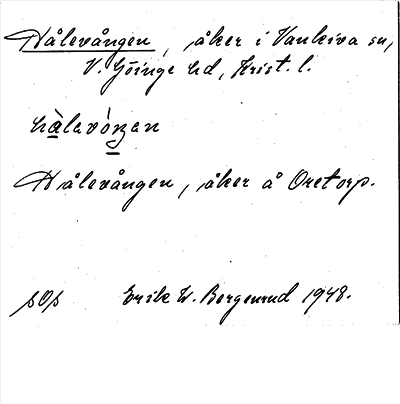 Hålevången, åker i Vankiva sn,
V. Göinge hd, Krist. l.
hàlavóŋan
Hålevången, åker å Oretorp.
pOp Erik W. Bergenrud 1948.